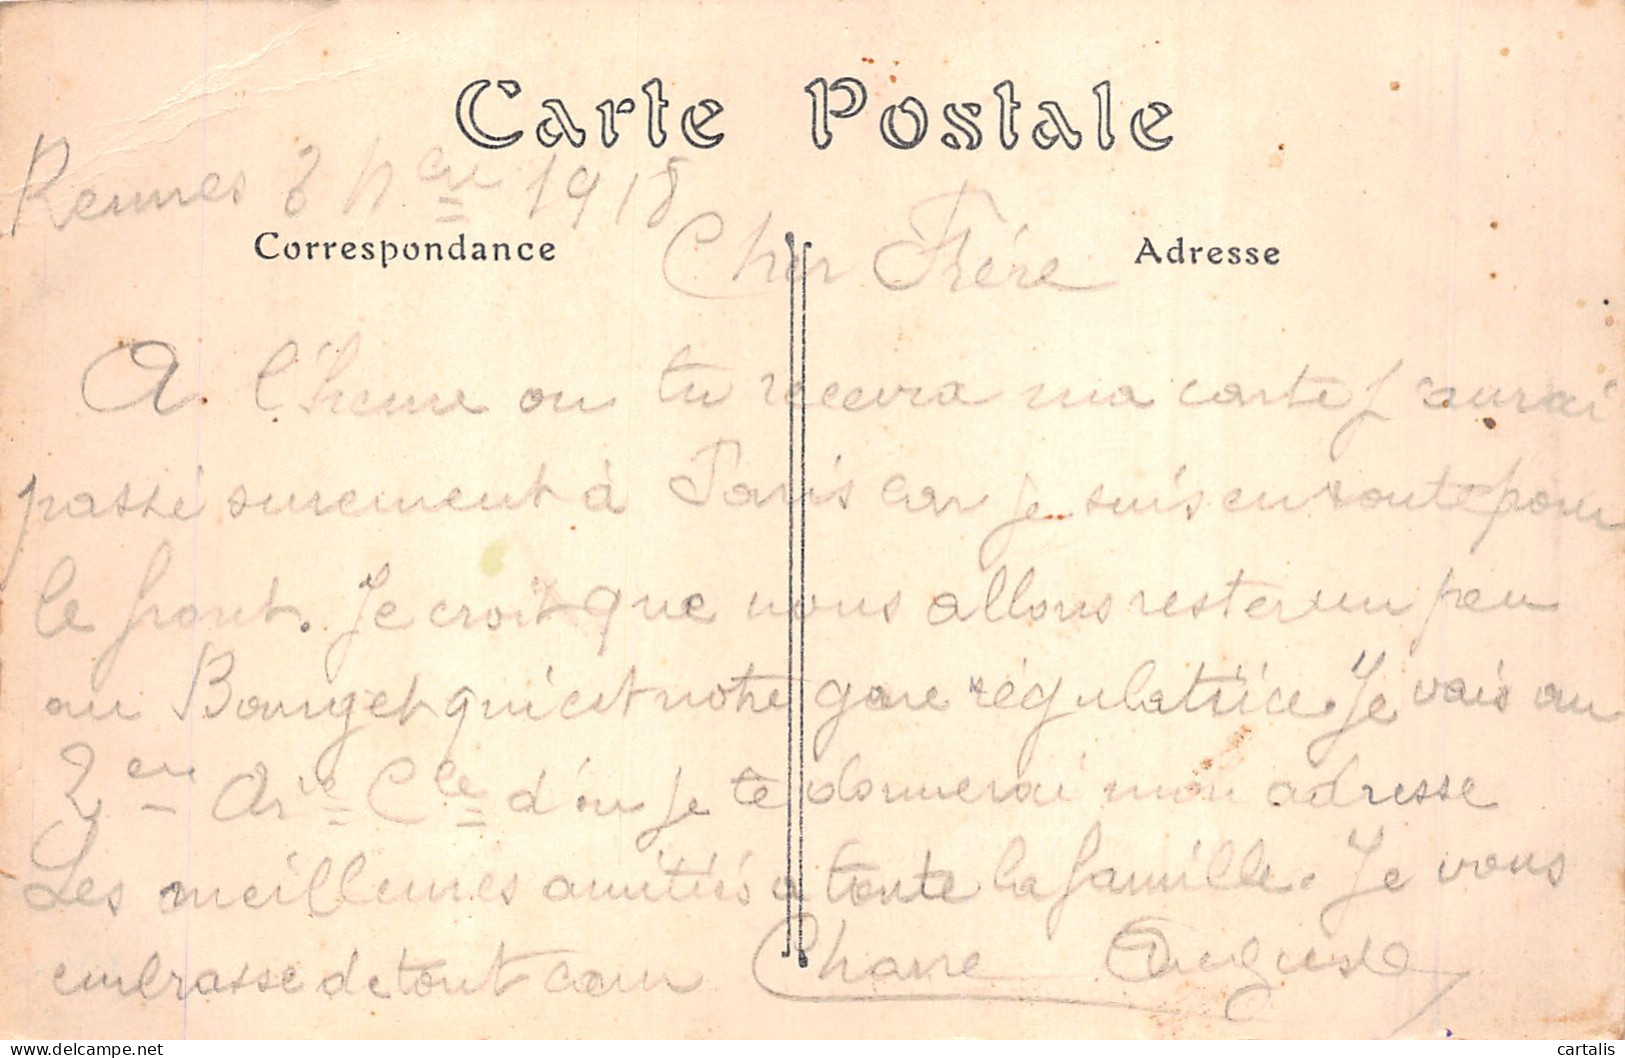 Carte Postale
Rennes 3 Nbre 1918
Correspondance
Adresse
Cher Frère
A l'heure ou tu recevra ma carte J'aurai
passé surement à Paris car je suis en route pour
le front. Je croit que nous allons rester un peu
au Bourget qui est notre gare régulatrice. Je vais au
2em Arie Cle d'ou je te donnerai mon adresse
Les meilleures amitiés a toute la famille. Je vous
embrasse de tout cœur Auguste
cartalis